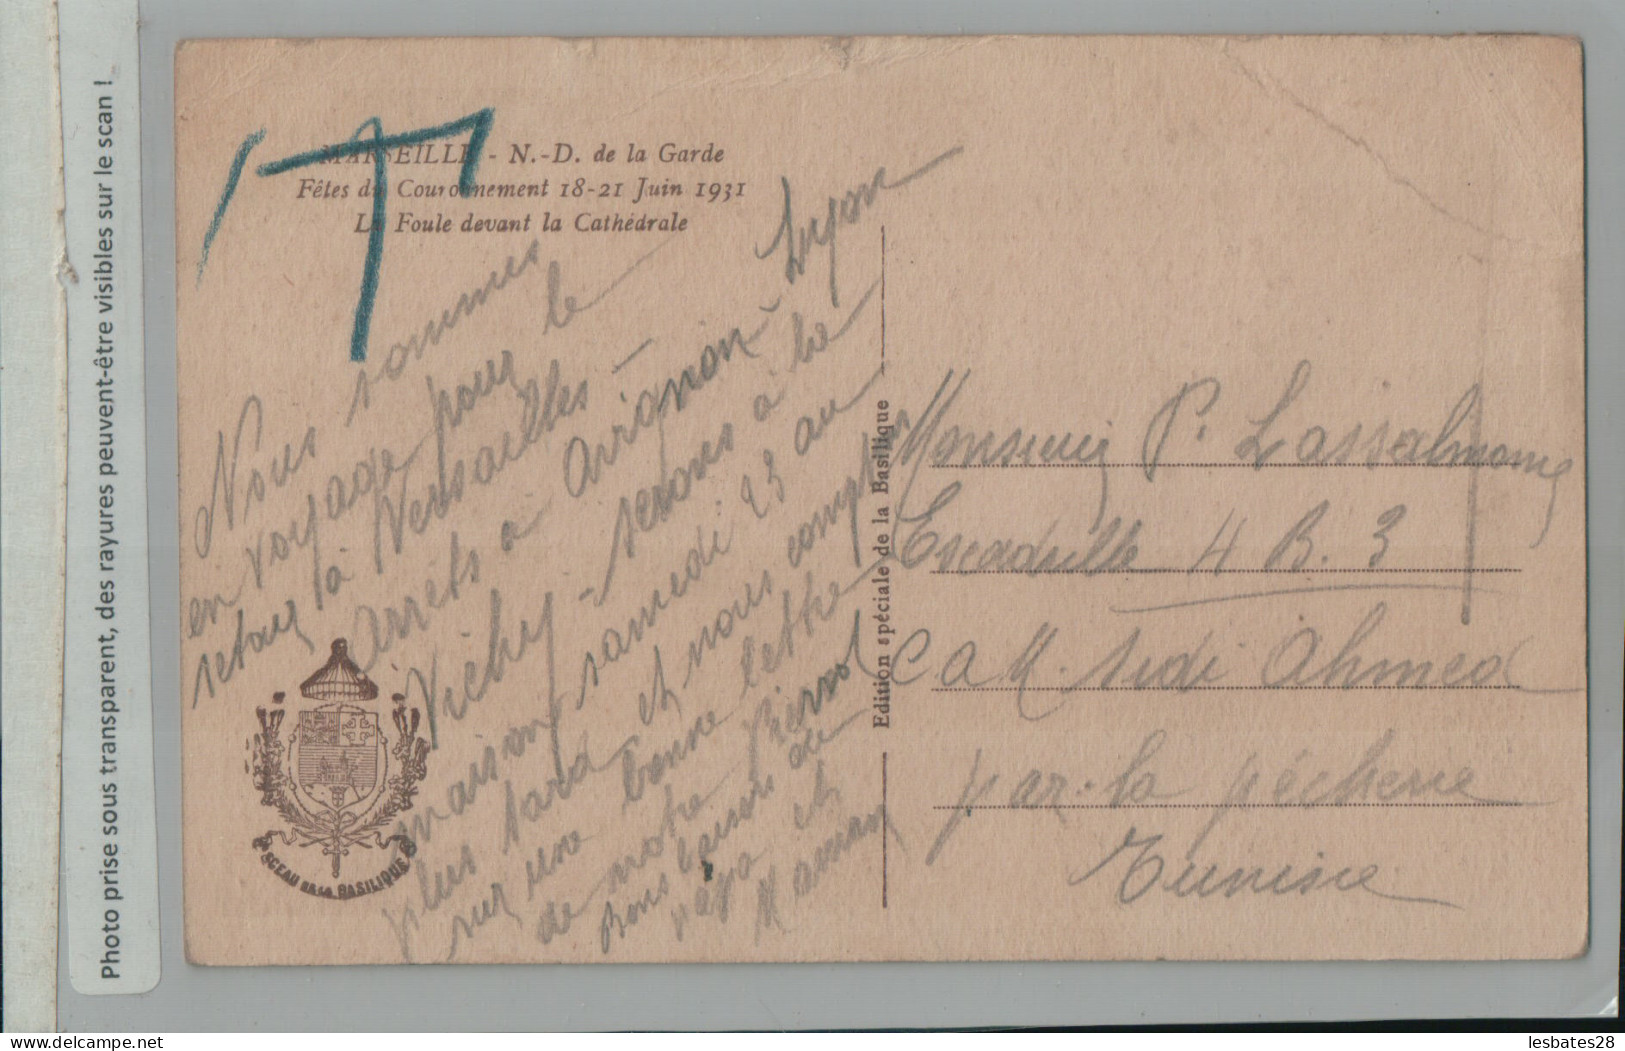 Photo prise sous transparent, des rayures peuvent-être visibles sur le scan !
T
MARSEILLE - N.-D. de la Garde
Fêtes du Couronnement 18-21 Juin 1931
La Foule devant la Cathédrale
Nous sommes
en voyage pour le
retour à Versailles -
Arrêts à Avignon - Lyon
Vichy - serons à la
maison samedi 23 au
plus tard et nous comptons
sur une bonne lettre
de notre Pierrot
Bons baisers de
papa et
Maman
SCEAU DE LA BASILIQUE
Edition spéciale de la Basilique
Monsieur P. Lassalmonie
Escadrille 4 B. 3
CAM. Sidi Ahmed
par la pécherie
Tunisie
lesbates28